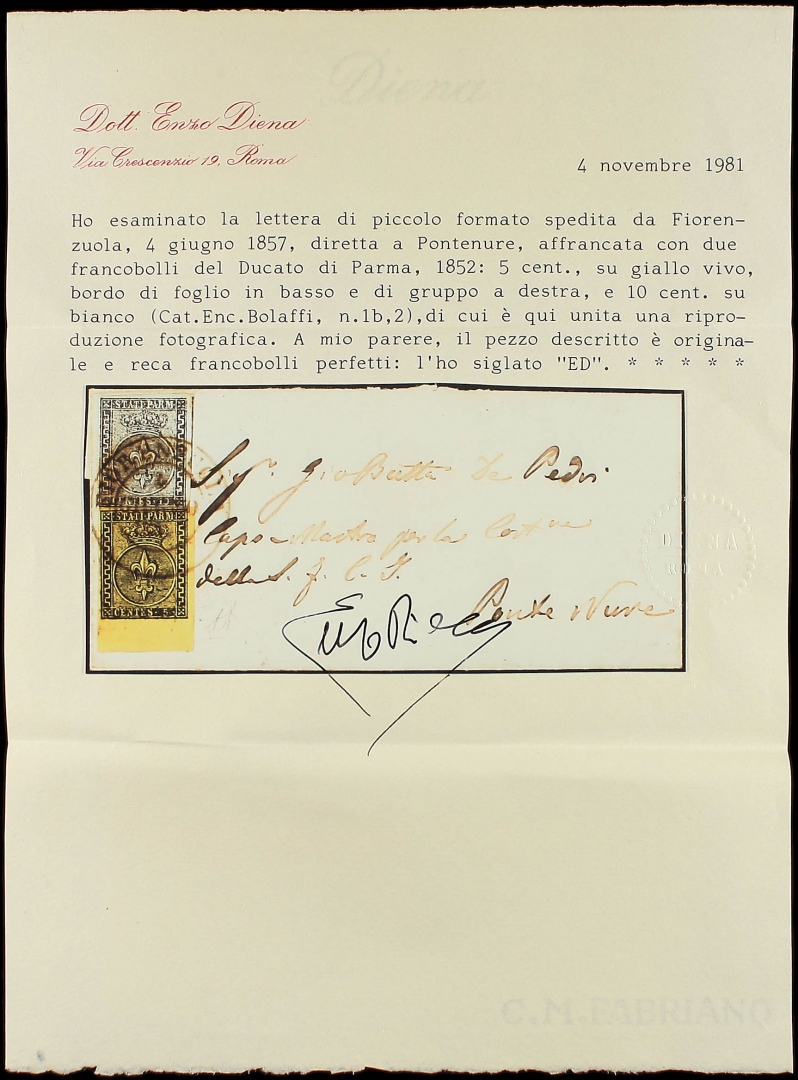 Diena
Dott. Enzo Diena
Via Crescenzio 19, Roma
4 novembre 1981
Ho esaminato la lettera di piccolo formato spedita da Fioren-
zuola, 4 giugno 1857, diretta a Pontenure, affrancata con due
francobolli del Ducato di Parma, 1852: 5 cent., su giallo vivo,
bordo di foglio in basso e di gruppo a destra, e 10 cent. su
bianco (Cat.Enc.Bolaffi, n.1b,2),di cui è qui unita una ripro-
duzione fotografica. A mio parere, il pezzo descritto è origina-
le e reca francobolli perfetti: l'ho siglato "ED". * * * * *
STATI PARM
STATI PARM
CENTES. 5
Sigr. Gio Batta De Pedri
Capo Mastro per la
della S. f. C. I.
Ponte Nure
Enzo Diena
DIENA
ROMA
C.M.FABRIANO